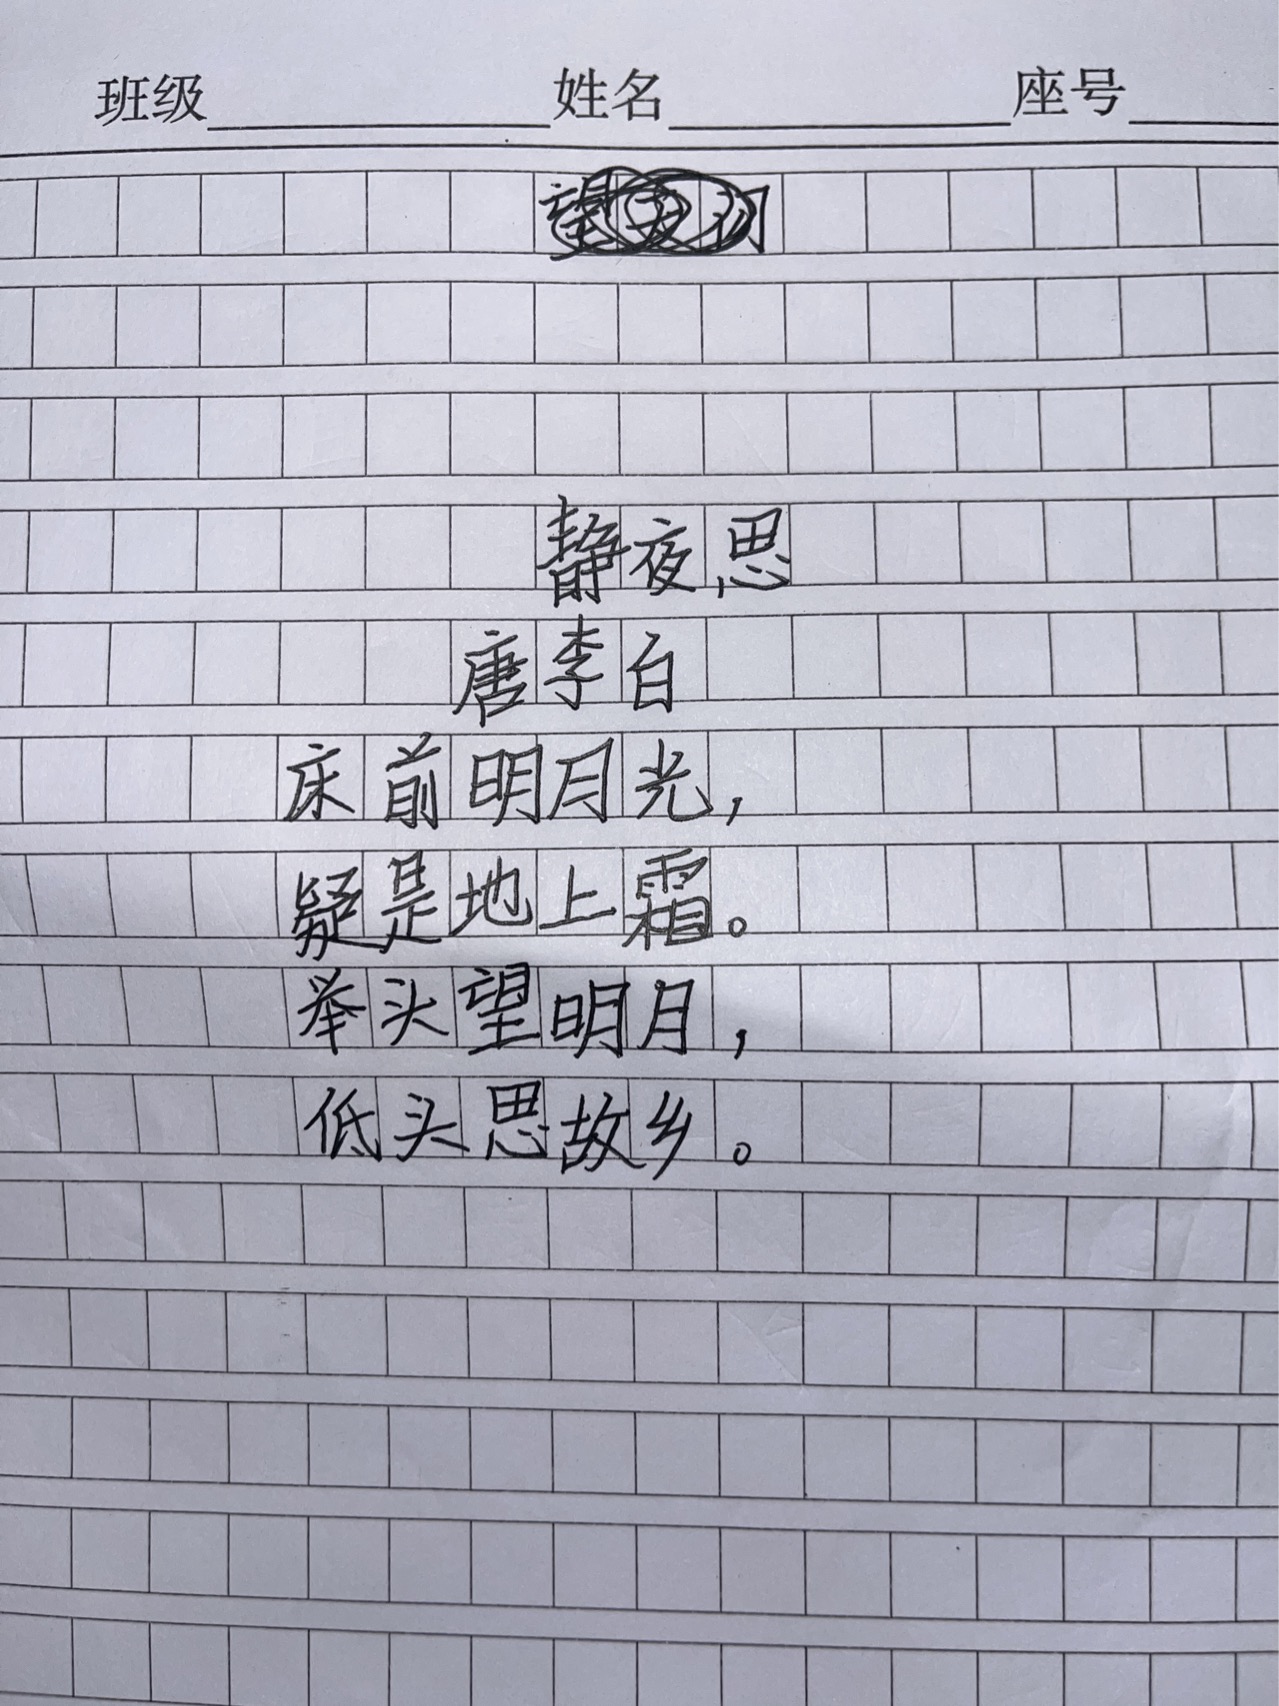 班级 姓名 座号
静夜思
唐李白
床前明月光，
疑是地上霜。
举头望明月，
低头思故乡。